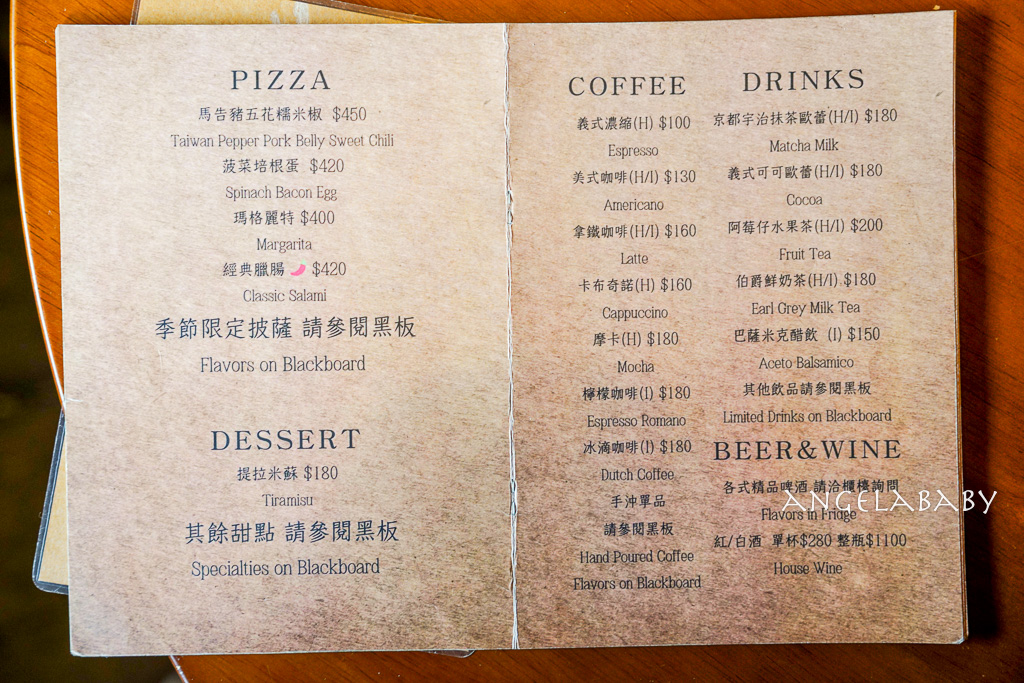 PIZZA
馬告豬五花糯米椒 $450
Taiwan Pepper Pork Belly Sweet Chili
菠菜培根蛋 $420
Spinach Bacon Egg
瑪格麗特 $400
Margarita
經典臘腸 $420
Classic Salami
季節限定披薩 請參閱黑板
Flavors on Blackboard
DESSERT
提拉米蘇 $180
Tiramisu
其餘甜點 請參閱黑板
Specialties on Blackboard
COFFEE
義式濃縮(H) $100
Espresso
美式咖啡(H/I) $130
Americano
拿鐵咖啡(H/I) $160
Latte
卡布奇諾(H) $160
Cappuccino
摩卡(H) $180
Mocha
檸檬咖啡(I) $180
Espresso Romano
冰滴咖啡(I) $180
Dutch Coffee
手沖單品
請參閱黑板
Hand Poured Coffee
Flavors on Blackboard
DRINKS
京都宇治抹茶歐蕾(H/I) $180
Matcha Milk
義式可可歐蕾(H/I) $180
Cocoa
阿莓仔水果茶(H/I) $200
Fruit Tea
伯爵鮮奶茶(H/I) $180
Earl Grey Milk Tea
巴薩米克醋飲 (I) $150
Aceto Balsamico
其他飲品請參閱黑板
Limited Drinks on Blackboard
BEER&WINE
各式精品啤酒 請洽櫃檯詢問
Flavors in Fridge
紅/白酒 單杯$280 整瓶$1100
House Wine
ANGELABABY